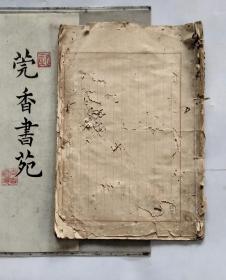 莞香書苑